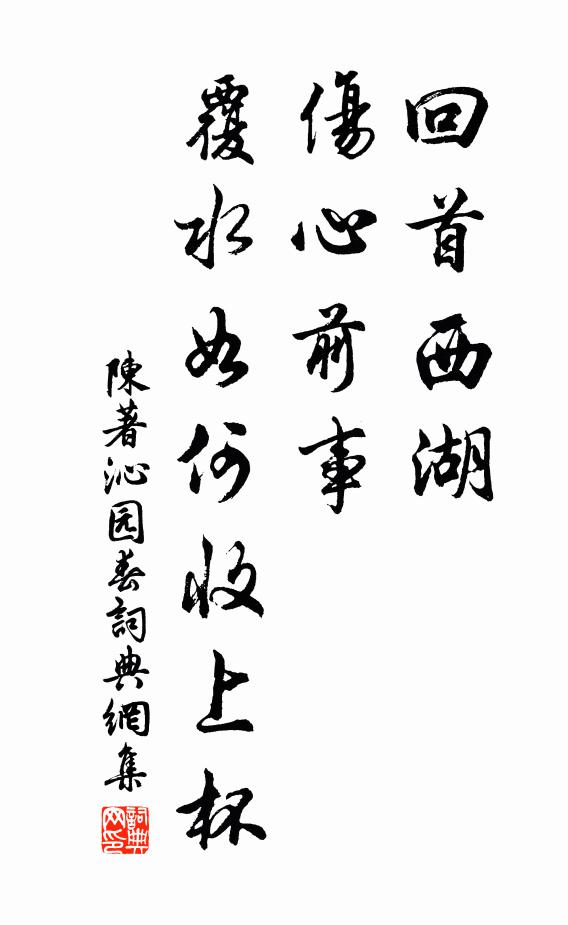 回首西湖
傷心前事
覆水如何收上杯
陳著沁园春詞典網集
詞典网印